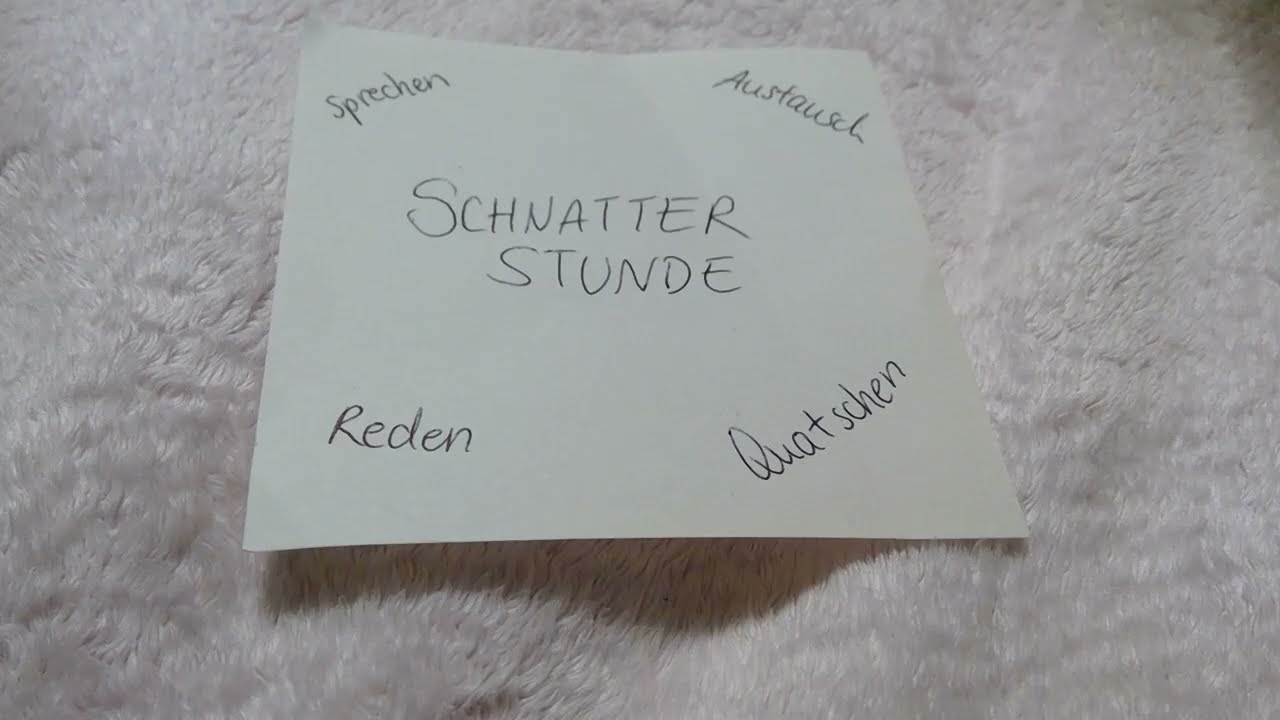 Sprechen
Austausch
SCHNATTER
STUNDE
Reden
Quatschen